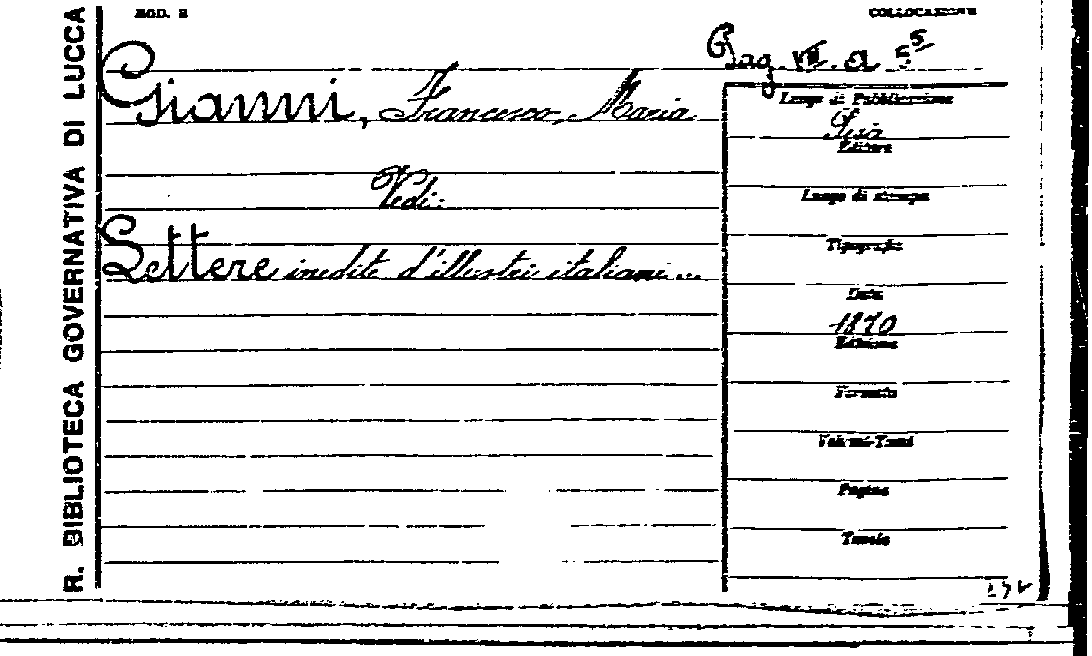 MOD. E
COLLOCAZIONE
R. BIBLIOTECA GOVERNATIVA DI LUCCA
Gianni, Francesco, Maria
Vedi:
Lettere inedite d'illustri italiani...
Luogo di Pubblicazione
Editore
Luogo di stampa
Tipografia
Data
1870
Edizione
Formato
Volumi-Tomi
Pagine
Tavole